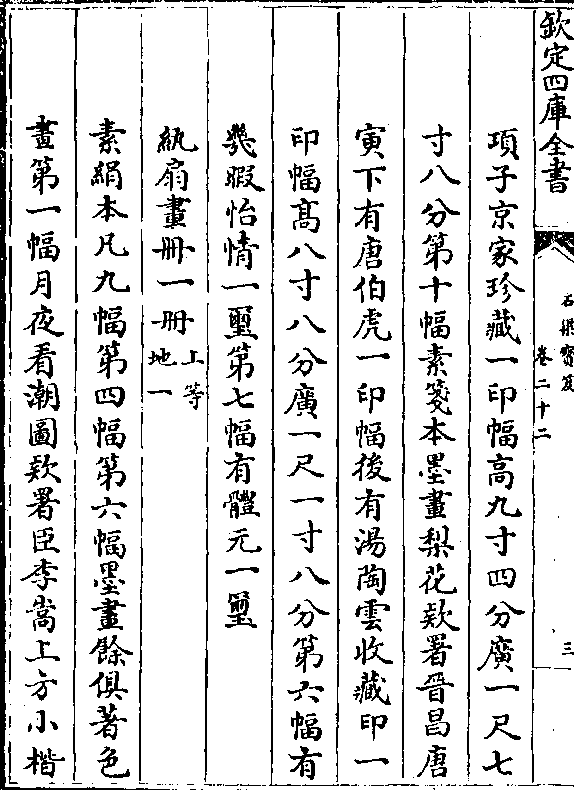 欽定四庫全書
石渠寳笈
卷二十二
三
項子京家珍藏一印幅高九寸四分廣一尺七
寸八分第十幅素箋本墨畫梨花欵署晉昌唐
寅下有唐伯虎一印幅後有湯陶雲收藏印一
印幅髙八寸八分廣一尺一寸八分第六幅有
㡬暇怡情一璽第七幅有體元一璽
紈扇畫冊一冊上等地一
素絹本凡九幅第四幅第六幅墨畫餘俱著色
畫第一幅月夜看潮圖欵署臣李嵩上方小楷